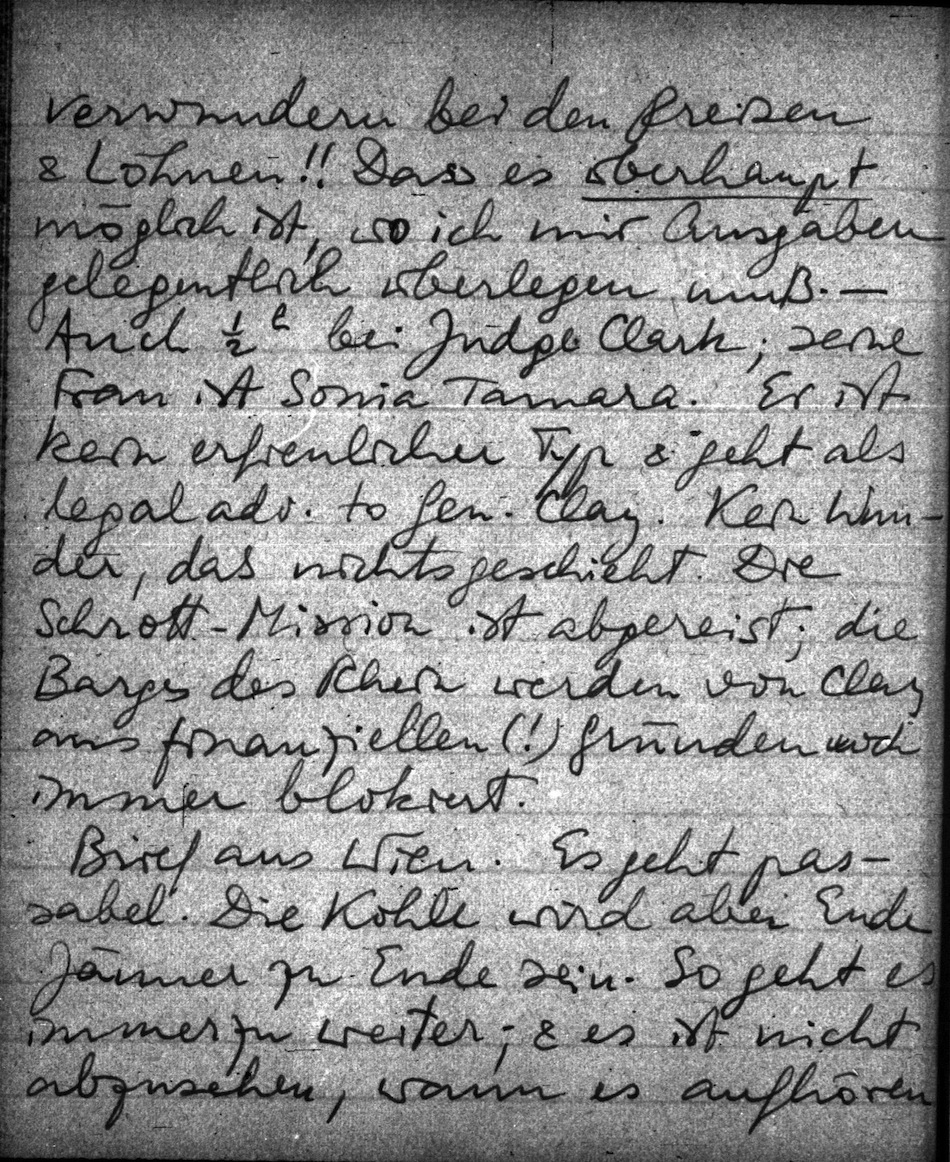 verwundern bei den Preisen
& Löhnen!! Dass es überhaupt
möglich ist, wo ich mir Ausgaben
gelegentlich überlegen muß. —
Auch ½ h bei Judge Clark; seine
Frau ist Sonia Tamara. Er ist
kein erfreulicher Typ & geht als
legal adv. to Gen. Clay. Kein Wun-
der, das nichts geschieht. Die
Schrott-Mission ist abgereist; die
Barges des Rhein werden von Clay
aus finanziellen (!) Gründen noch
immer blokiert.
Brief aus Wien. Es geht pas-
sabel. Die Kohle wird aber Ende
Jänner zu Ende sein. So geht es
immerzu weiter; & es ist nicht
abzusehen, wann es aufhören